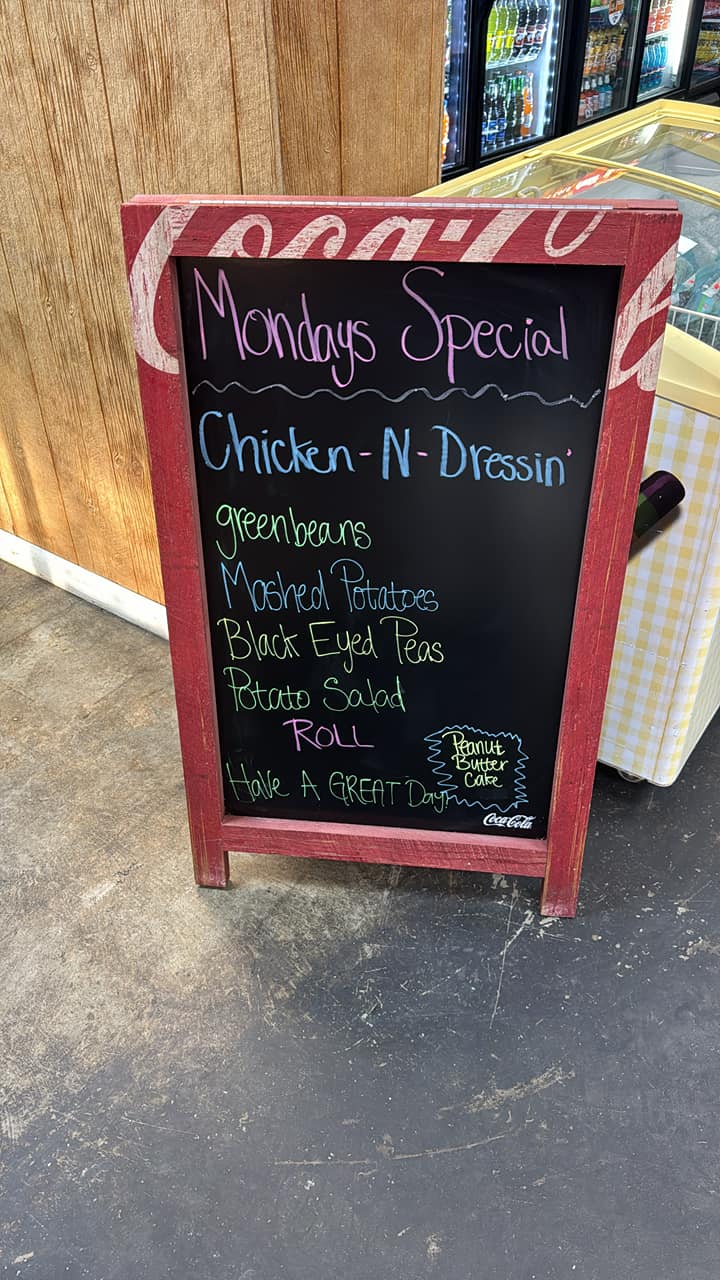 Coca-Cola
Mondays Special
Chicken-N-Dressin'
greenbeans
Mashed Potatoes
Black Eyed Peas
Potato Salad
ROLL
Have A GREAT Day!
Peanut
Butter
Cake
Coca-Cola